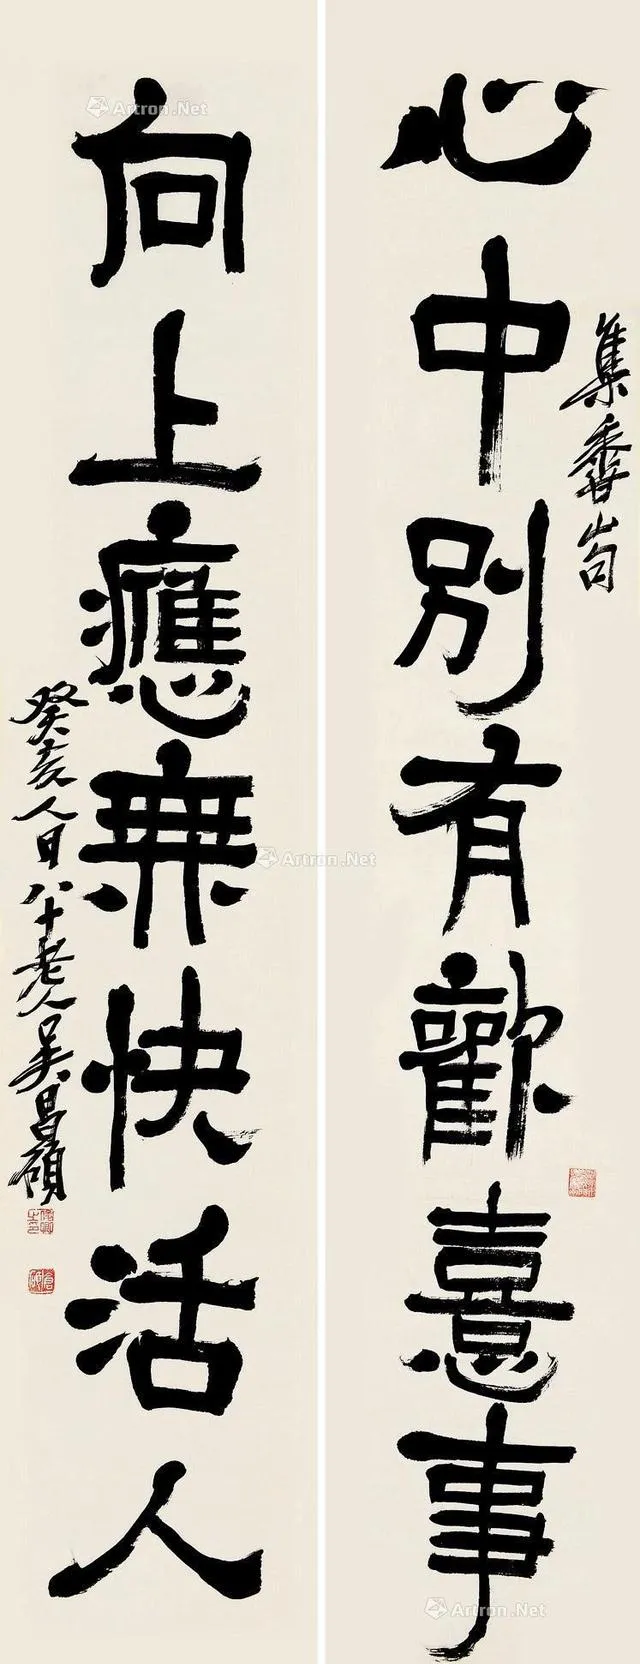 心中別有歡憙事
集黍谷山句
向上應無快活人
癸亥人日八十老人吳昌碩
Artron.Net
Artron.Net
Artron.Net
Artron.Net